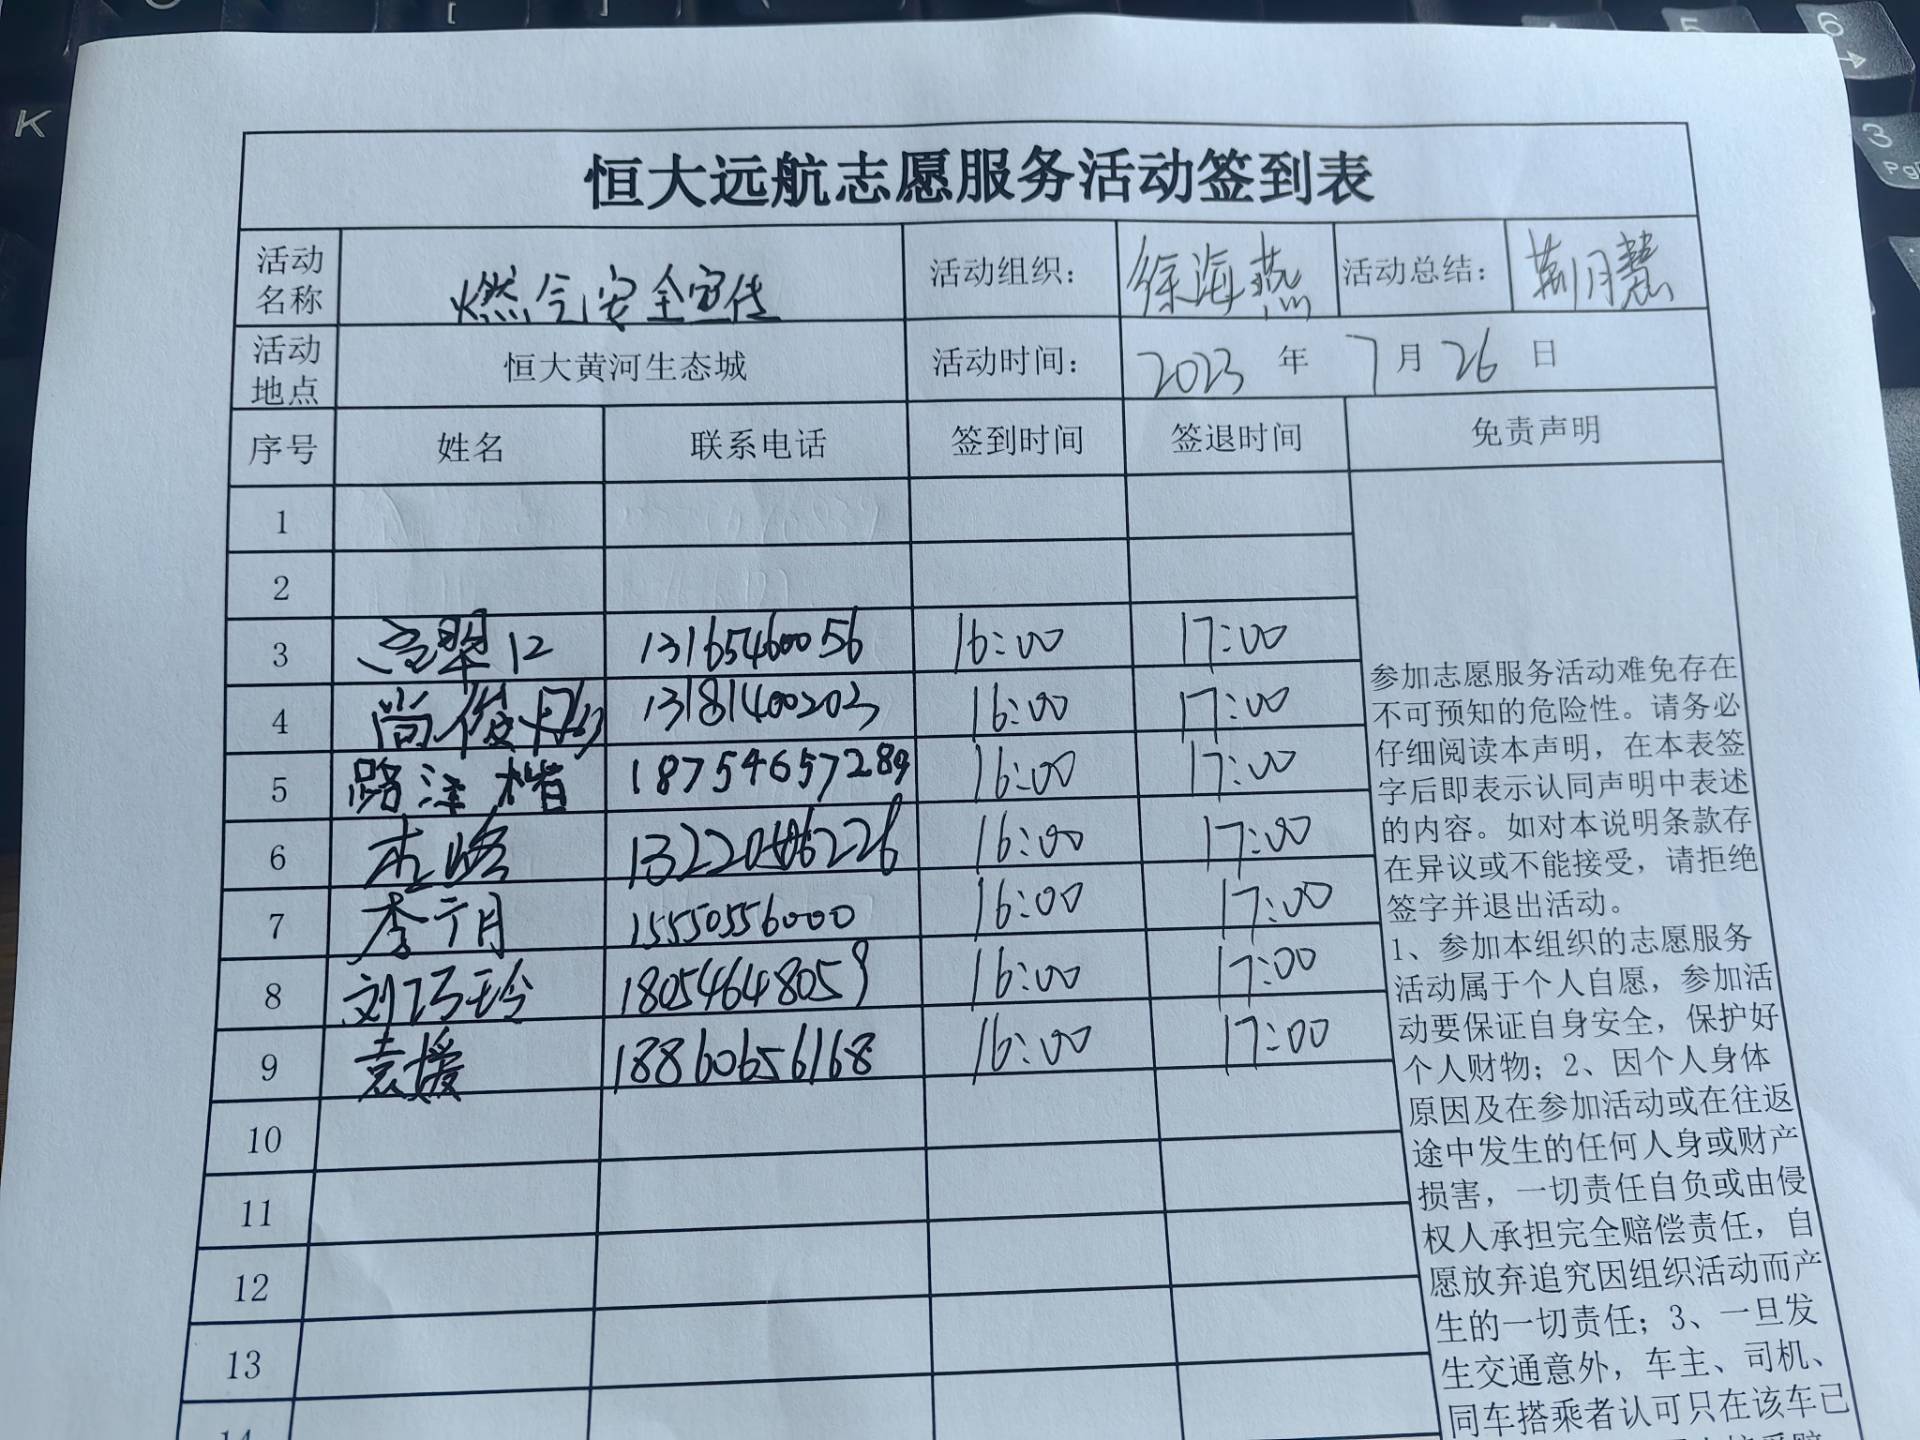 恒大远航志愿服务活动签到表
活动名称 燃气安全宣传 活动组织： 徐海燕 活动总结： 荆月慧
活动地点 恒大黄河生态城 活动时间： 2023 年 7 月 26 日
序号 姓名 联系电话 签到时间 签退时间 免责声明
1
2
3 13165460056 16:00 17:00
4 尚俊 13181400203 16:00 17:00
5 路泽楷 18754657289 16:00 17:00
6 杜峰 16:00 17:00
7 李月 15550556000 16:00 17:00
8 刘巧玲 18054648059 16:00 17:00
9 袁媛 18860656168 16:00 17:00
10
11
12
13
14
参加志愿服务活动难免存在
不可预知的危险性。请务必
仔细阅读本声明，在本表签
字后即表示认同声明中表述
的内容。如对本说明条款存
在异议或不能接受，请拒绝
签字并退出活动。
1、参加本组织的志愿服务
活动属于个人自愿，参加活
动要保证自身安全，保护好
个人财物；2、因个人身体
原因及在参加活动或在往返
途中发生的任何人身或财产
损害，一切责任自负或由侵
权人承担完全赔偿责任，自
愿放弃追究因组织活动而产
生的一切责任；3、一旦发
生交通意外，车主、司机、
同车搭乘者认可只在该车已
K
6
5
3